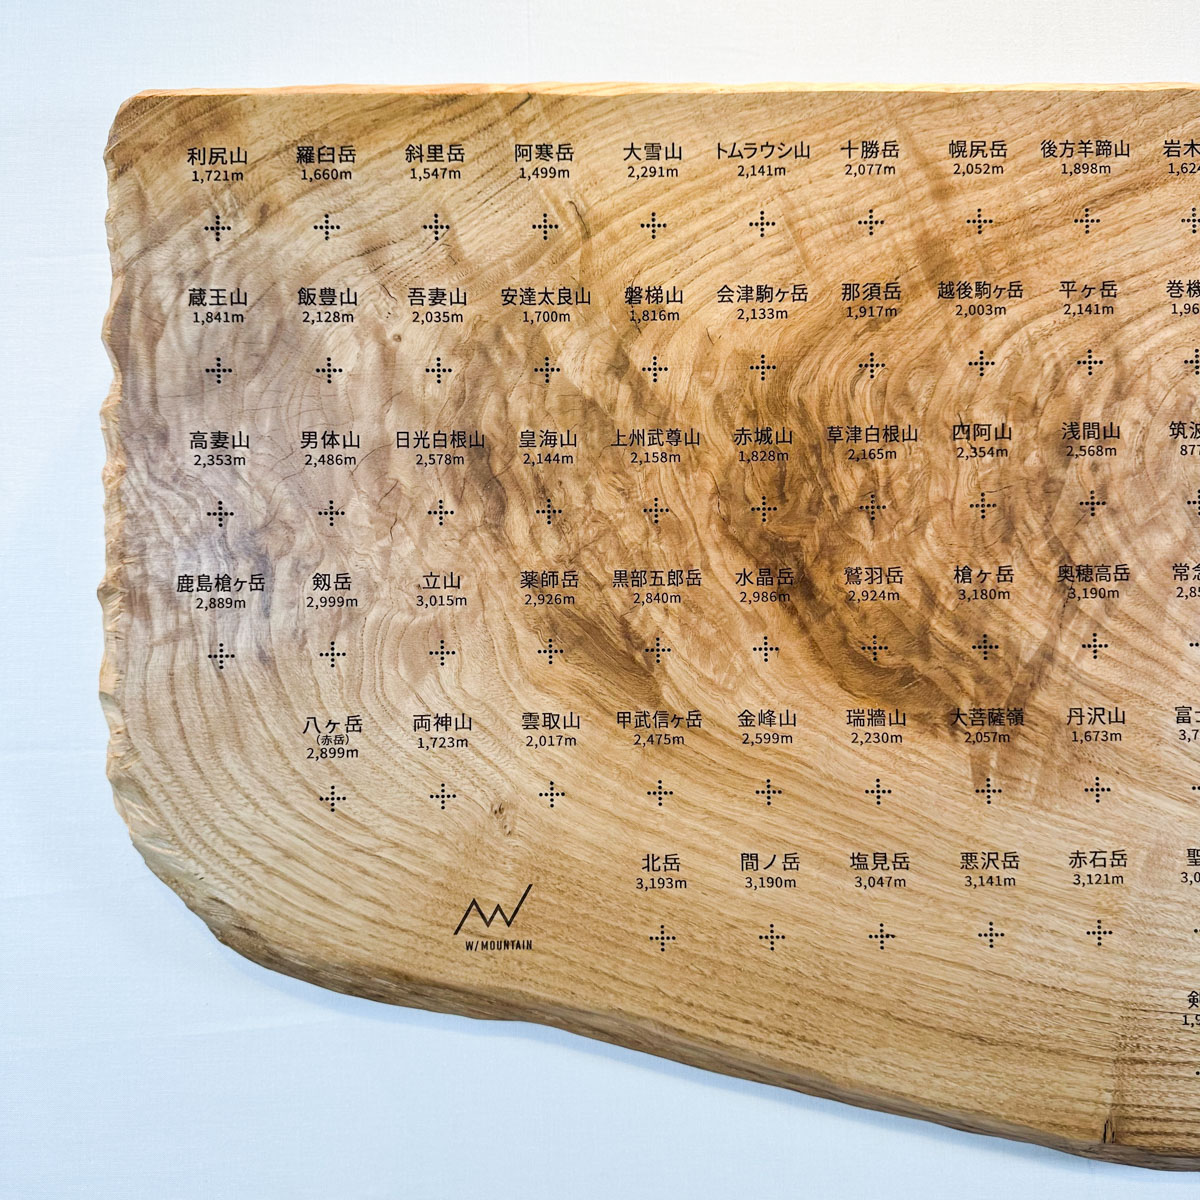 利尻山 羅臼岳 斜里岳 阿寒岳 大雪山 トムラウシ山 十勝岳 幌尻岳 後方羊蹄山 岩木
1,721m 1,660m 1,547m 1,499m 2,291m 2,141m 2,077m 2,052m 1,898m 1,624
蔵王山 飯豊山 吾妻山 安達太良山 磐梯山 会津駒ヶ岳 那須岳 越後駒ヶ岳 平ヶ岳 巻機
1,841m 2,128m 2,035m 1,700m 1,816m 2,133m 1,917m 2,003m 2,141m 1,96
高妻山 男体山 日光白根山 皇海山 上州武尊山 赤城山 草津白根山 四阿山 浅間山 筑波
2,353m 2,486m 2,578m 2,144m 2,158m 1,828m 2,165m 2,354m 2,568m 877
鹿島槍ヶ岳 剱岳 立山 薬師岳 黒部五郎岳 水晶岳 鷲羽岳 槍ヶ岳 奥穂高岳 常念
2,889m 2,999m 3,015m 2,926m 2,840m 2,986m 2,924m 3,180m 3,190m 2,85
八ヶ岳 両神山 雲取山 甲武信ヶ岳 金峰山 瑞牆山 大菩薩嶺 丹沢山 富士
(赤岳)
2,899m 1,723m 2,017m 2,475m 2,599m 2,230m 2,057m 1,673m 3,7
北岳 間ノ岳 塩見岳 悪沢岳 赤石岳 聖
3,193m 3,190m 3,047m 3,141m 3,121m 3,0
W/MOUNTAIN
剣
1,9